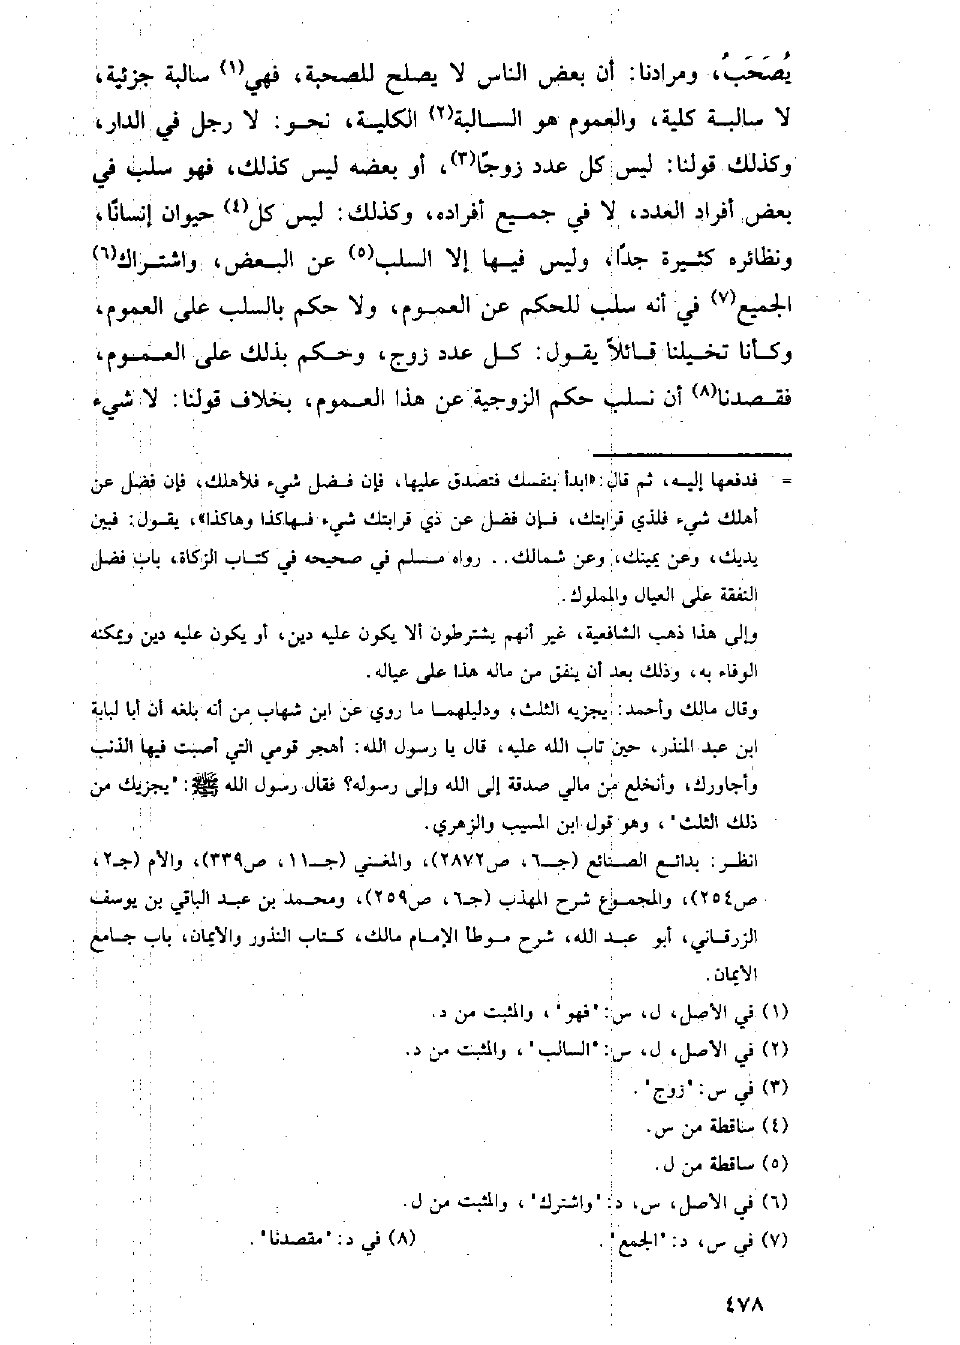 يُصَحَبُ، ومرادنا: أن بعض الناس لا يصلح للصحبة، فهي(١) سالبة جزئية،
لا سالبـة كلية، والعموم هو السـالبة(٢) الكليـة، نحـو: لا رجل في الدار،
وكذلك قولنا: ليس كل عدد زوجًا(٣)، أو بعضه ليس كذلك، فهو سلب في
بعض أفراد العدد، لا في جميع أفراده، وكذلك: ليس كل(٤) حيوان إنسانًا،
ونظائره كثيرة جدًا، وليس فيـها إلا السلب(٥) عن البـعض، واشتـراك(٦)
الجميع(٧) في أنه سلب للحكم عن العمـوم، ولا حكم بالسلب على العموم،
وكـأنا تخـيلنا قـائلاً يقـول: كـل عدد زوج، وحـكم بذلك على العـمـوم،
فقـصدنا(٨) أن نسلب حكم الزوجية عن هذا العـموم، بخلاف قولنا: لا شيء
= فدفعها إليـه، ثم قال: «ابدأ بنفسك فتصدق عليها، فإن فـضل شيء فلأهلك، فإن فضل عن
أهلك شيء فلذي قرابتك، فـإن فضل عن ذي قرابتك شيء فـهاكذا وهاكذا»، يقـول: فبين
يديك، وعن يمينك، وعن شمالك.. رواه مـسلم في صحيحه في كتـاب الزكاة، باب فضل
النفقة على العيال والمملوك.
وإلى هذا ذهب الشافعية، غير أنهم يشترطون ألا يكون عليه دين، أو يكون عليه دين ويمكنه
الوفاء به، وذلك بعد أن ينفق من ماله هذا على عياله.
وقال مالك وأحمد: يجزيه الثلث، ودليلهمـا ما روي عن ابن شهاب من أنه بلغه أن أبا لبابة
ابن عبد المنذر، حين تاب الله عليه، قال يا رسول الله: أهجر قومي التي أصبت فيها الذنب
وأجاورك، وأنخلع من مالي صدقة إلى الله وإلى رسوله؟ فقال رسول الله ﷺ: "يجزيك من
ذلك الثلث"، وهو قول ابن المسيب والزهري.
انظـر: بدائـع الصـنائع (جـ٦، ص٢٨٧٢)، والمغـني (جـ١١، ص٣٣٩)، والأم (جـ٢،
ص٢٥٤)، والمجمـوع شرح المهذب (جـ٦، ص٢٥٩)، ومحـمد بن عبـد الباقي بن يوسف
الزرقـاني، أبو عبـد الله، شرح مـوطأ الإمـام مالك، كـتاب النذور والأيمان، باب جـامع
الأيمان.
(١) في الأصل، ل، س: "فهو"، والمثبت من د.
(٢) في الأصل، ل، س: "السالب"، والمثبت من د.
(٣) في س: "زوج".
(٤) ساقطة من س.
(٥) ساقطة من ل.
(٦) في الأصل، س، د: "واشترك"، والمثبت من ل.
(٧) في س، د: "الجمع". (٨) في د: "مقصدنا".
٤٧٨